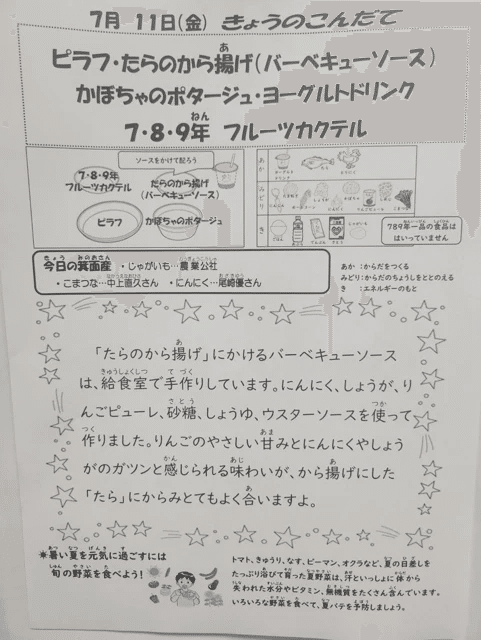 7月 11日(金) きょうのこんだて
ピラフ・たらのから揚げ(バーベキューソース)
かぼちゃのポタージュ・ヨーグルトドリンク
7・8・9年 フルーツカクテル
ソースをかけて配ろう
7・8・9年
フルーツカクテル
たらのから揚げ
(バーベキューソース)
ピラフ
かぼちゃのポタージュ
あか
みどり
き
789年一品の食品は
はいっていません
今日の箕面産 ・じゃがいも…農業公社
・こまつな…中上直久さん ・にんにく…尾崎優さん
あか :からだをつくる
みどり:からだのちょうしをととのえる
き :エネルギーのもと
「たらのから揚げ」にかけるバーベキューソース
は、給食室で手作りしています。にんにく、しょうが、り
んごピューレ、砂糖、しょうゆ、ウスターソースを使って
作りました。りんごのやさしい甘みとにんにくやしょう
がのガツンと感じられる味わいが、から揚げにした
「たら」にからみとてもよく合いますよ。
☀暑い夏を元気に過ごすには
旬の野菜を食べよう!
トマト、きゅうり、なす、ピーマン、オクラなど、夏の日差しを
たっぷり浴びて育った夏野菜は、汗といっしょに体から
失われた水分やビタミン、無機質をたくさん含んでいます。
いろいろな野菜を食べて、夏バテを予防しましょう。